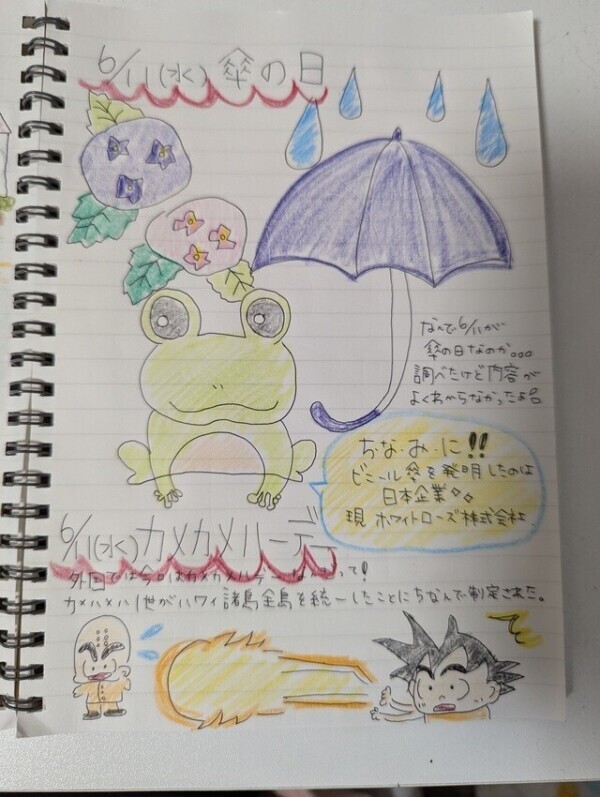 6/11(水) 傘の日
なんで6/11が
傘の日なのか。。。
調べたけど内容が
よくわからなかったよ
ち・な・み・に!!
ビニール傘を発明したのは
日本企業
現 ホワイトローズ株式会社
6/11(水)カメカメハーデー
外国では今日はカメカメハデーなんだって!
カメハメハ1世がハワイ諸島全島を統一したことにちなんで制定された。